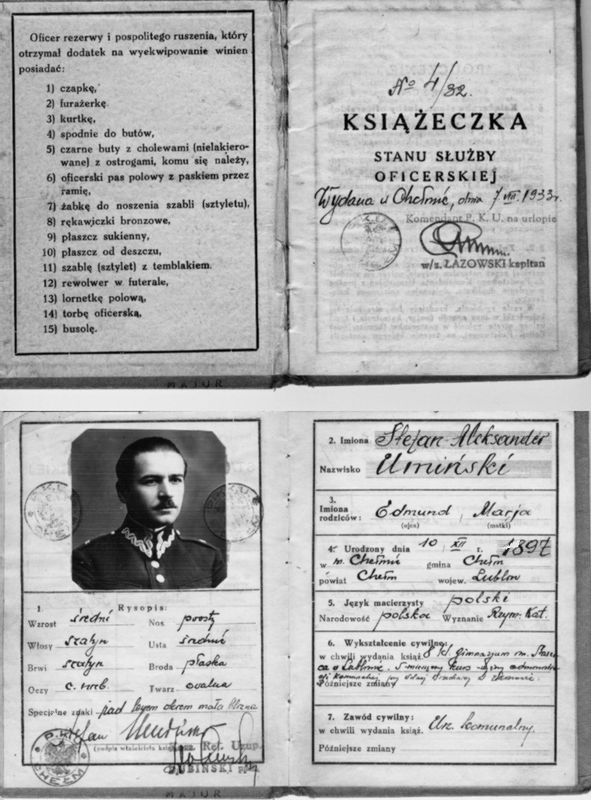 Oficer rezerwy i pospolitego ruszenia, który
otrzymał dodatek na wyekwipowanie winien
posiadać:
1) czapkę,
2) furażerkę
3) kurtkę,
4) spodnie do butów,
5) czarne buty z cholewami (nielakiero-
wane) z ostrogami, komu się należy,
6) oficerski pas polowy z paskiem przez
ramię,
7) żabkę do noszenia szabli (sztyletu),
8) rękawiczki bronzowe,
9) płaszcz sukienny,
10) płaszcz od deszczu,
11) szablę (sztylet) z temblakiem.
12) rewolwer w futerale,
13) lornetkę polową,
14) torbę oficerską,
15) busolę.
MAJUR
No 4/32.
KSIĄŻECZKA
STANU SŁUŻBY
OFICERSKIEJ
Wydana w Chełmie, dnia 7 VIII. 1933r.
Komendant P. K. U. na urlopie
w/z. ŁAZOWSKI kapitan
1. Rysopis:
Wzrost średni Nos prosty
Włosy szatyn Usta średnie
Brwi szatyn Broda płaska
Oczy c. nieb. Twarz owalna
Specjalne znaki pod lewym okiem mała blizna
(podpis właściciela książ.
Ref. Uzup.
P.K.U.
CHEŁM
MAJUR
2. Imiona Stefan-Aleksander
Nazwisko Umiński
3.
Imiona
rodziców: Edmund, Marja
(ojca) (matki)
4. Urodzony dnia 10 XII r. 1897
w m. Chełmie gmina Chełm
powiat Chełm wojew. Lublin
5. Język macierzysty polski
Narodowość polska Wyznanie Rzym. Kat.
6. Wykształcenie cywilne:
w chwili wydania książ. 8 kl. Gimnazjum im. Staszi-
ca w Lublinie.
Późniejsze zmiany
7. Zawód cywilny:
w chwili wydania książ. Urz. komunalny.
Późniejsze zmiany